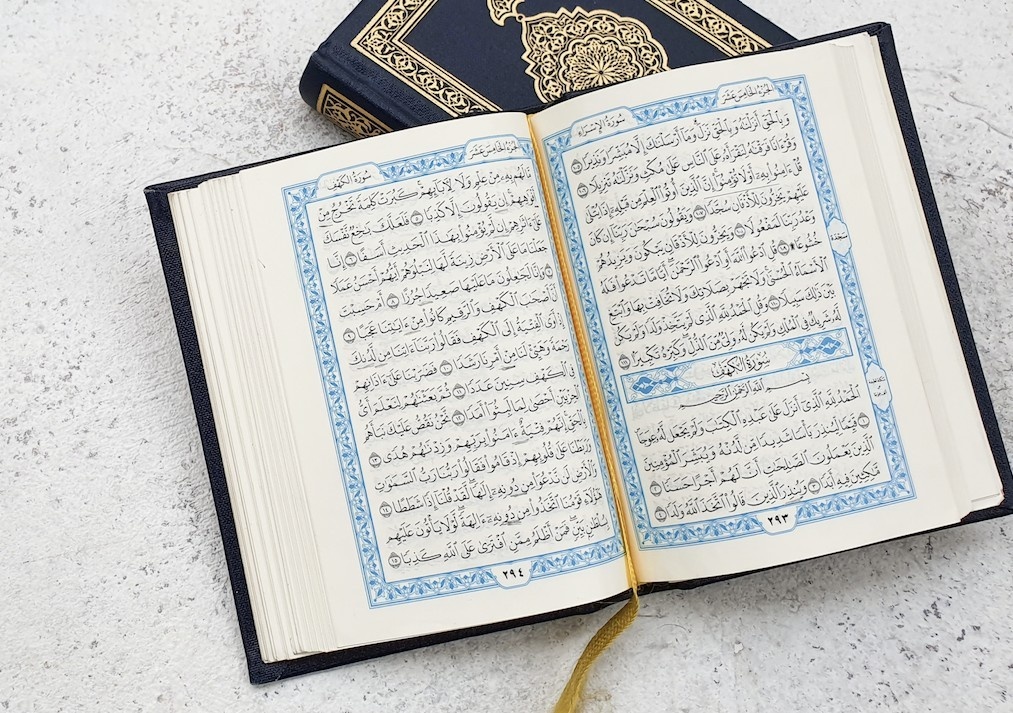 سُورَةُ الإِسْرَاءِ
الجُزْءُ الخَامِسَ عَشَرَ
وَبِٱلْحَقِّ أَنزَلْنَٰهُ وَبِٱلْحَقِّ نَزَلَ وَمَآ أَرْسَلْنَٰكَ إِلَّا مُبَشِّرًا وَنَذِيرًا ١٠٥
وَقُرْءَانًا فَرَقْنَٰهُ لِتَقْرَأَهُۥ عَلَى ٱلنَّاسِ عَلَىٰ مُكْثٍ وَنَزَّلْنَٰهُ تَنزِيلًا ١٠٦
قُلْ ءَامِنُوا۟ بِهِۦٓ أَوْ لَا تُؤْمِنُوٓا۟ إِنَّ ٱلَّذِينَ أُوتُوا۟ ٱلْعِلْمَ مِن قَبْلِهِۦٓ إِذَا يُتْلَىٰ
عَلَيْهِمْ يَخِرُّونَ لِلْأَذْقَانِ سُجَّدًا ١٠٧ وَيَقُولُونَ سُبْحَٰنَ رَبِّنَآ إِن كَانَ
وَعْدُ رَبِّنَا لَمَفْعُولًا ١٠٨ وَيَخِرُّونَ لِلْأَذْقَانِ يَبْكُونَ وَيَزِيدُهُمْ
خُشُوعًا ۩ ١٠٩ قُلِ ٱدْعُوا۟ ٱللَّهَ أَوِ ٱدْعُوا۟ ٱلرَّحْمَٰنَ أَيًّا مَّا تَدْعُوا۟ فَلَهُ
ٱلْأَسْمَآءُ ٱلْحُسْنَىٰ وَلَا تَجْهَرْ بِصَلَاتِكَ وَلَا تُخَافِتْ بِهَا وَٱبْتَغِ
بَيْنَ ذَٰلِكَ سَبِيلًا ١١٠ وَقُلِ ٱلْحَمْدُ لِلَّهِ ٱلَّذِى لَمْ يَتَّخِذْ وَلَدًا وَلَمْ يَكُن
لَّهُۥ شَرِيكٌ فِى ٱلْمُلْكِ وَلَمْ يَكُن لَّهُۥ وَلِىٌّ مِّنَ ٱلذُّلِّ وَكَبِّرْهُ تَكْبِيرًۢا ١١١
سُورَةُ الكَهْفِ
بِسْمِ ٱللَّهِ ٱلرَّحْمَٰنِ ٱلرَّحِيمِ
ٱلْحَمْدُ لِلَّهِ ٱلَّذِىٓ أَنزَلَ عَلَىٰ عَبْدِهِ ٱلْكِتَٰبَ وَلَمْ يَجْعَل لَّهُۥ عِوَجَا
١ قَيِّمًا لِّيُنذِرَ بَأْسًا شَدِيدًا مِّن لَّدُنْهُ وَيُبَشِّرَ ٱلْمُؤْمِنِينَ
ٱلَّذِينَ يَعْمَلُونَ ٱلصَّٰلِحَٰتِ أَنَّ لَهُمْ أَجْرًا حَسَنًا ٢
مَّٰكِثِينَ فِيهِ أَبَدًا ٣ وَيُنذِرَ ٱلَّذِينَ قَالُوا۟ ٱتَّخَذَ ٱللَّهُ وَلَدًا ٤
سَجْدَة
٢٩٣
سُورَةُ الكَهْفِ
الجُزْءُ الخَامِسَ عَشَرَ
مَّا لَهُم بِهِۦ مِنْ عِلْمٍ وَلَا لِءَابَآئِهِمْ كَبُرَتْ كَلِمَةً تَخْرُجُ مِنْ
أَفْوَٰهِهِمْ إِن يَقُولُونَ إِلَّا كَذِبًا ٥ فَلَعَلَّكَ بَٰخِعٌ نَّفْسَكَ
عَلَىٰٓ ءَاثَٰرِهِمْ إِن لَّمْ يُؤْمِنُوا۟ بِهَٰذَا ٱلْحَدِيثِ أَسَفًا ٦ إِنَّا
جَعَلْنَا مَا عَلَى ٱلْأَرْضِ زِينَةً لَّهَا لِنَبْلُوَهُمْ أَيُّهُمْ أَحْسَنُ عَمَلًا
٧ وَإِنَّا لَجَٰعِلُونَ مَا عَلَيْهَا صَعِيدًا جُرُزًا ٨ أَمْ حَسِبْتَ
أَنَّ أَصْحَٰبَ ٱلْكَهْفِ وَٱلرَّقِيمِ كَانُوا۟ مِنْ ءَايَٰتِنَا عَجَبًا ٩
إِذْ أَوَى ٱلْفِتْيَةُ إِلَى ٱلْكَهْفِ فَقَالُوا۟ رَبَّنَآ ءَاتِنَا مِن لَّدُنكَ
رَحْمَةً وَهَيِّئْ لَنَا مِنْ أَمْرِنَا رَشَدًا ١٠ فَضَرَبْنَا عَلَىٰٓ ءَاذَانِهِمْ
فِى ٱلْكَهْفِ سِنِينَ عَدَدًا ١١ ثُمَّ بَعَثْنَٰهُمْ لِنَعْلَمَ أَىُّ
ٱلْحِزْبَيْنِ أَحْصَىٰ لِمَا لَبِثُوٓا۟ أَمَدًا ١٢ نَّحْنُ نَقُصُّ عَلَيْكَ نَبَأَهُم
بِٱلْحَقِّ إِنَّهُمْ فِتْيَةٌ ءَامَنُوا۟ بِرَبِّهِمْ وَزِدْنَٰهُمْ هُدًى ١٣
وَرَبَطْنَا عَلَىٰ قُلُوبِهِمْ إِذْ قَامُوا۟ فَقَالُوا۟ رَبُّنَا رَبُّ ٱلسَّمَٰوَٰتِ
وَٱلْأَرْضِ لَن نَّدْعُوَا۟ مِن دُونِهِۦٓ إِلَٰهًا لَّقَدْ قُلْنَآ إِذًا شَطَطًا ١٤
هَٰٓؤُلَآءِ قَوْمُنَا ٱتَّخَذُوا۟ مِن دُونِهِۦٓ ءَالِهَةً لَّوْلَا يَأْتُونَ عَلَيْهِم
بِسُلْطَٰنٍۭ بَيِّنٍ فَمَنْ أَظْلَمُ مِمَّنِ ٱفْتَرَىٰ عَلَى ٱللَّهِ كَذِبًا ١٥
٢٩٤